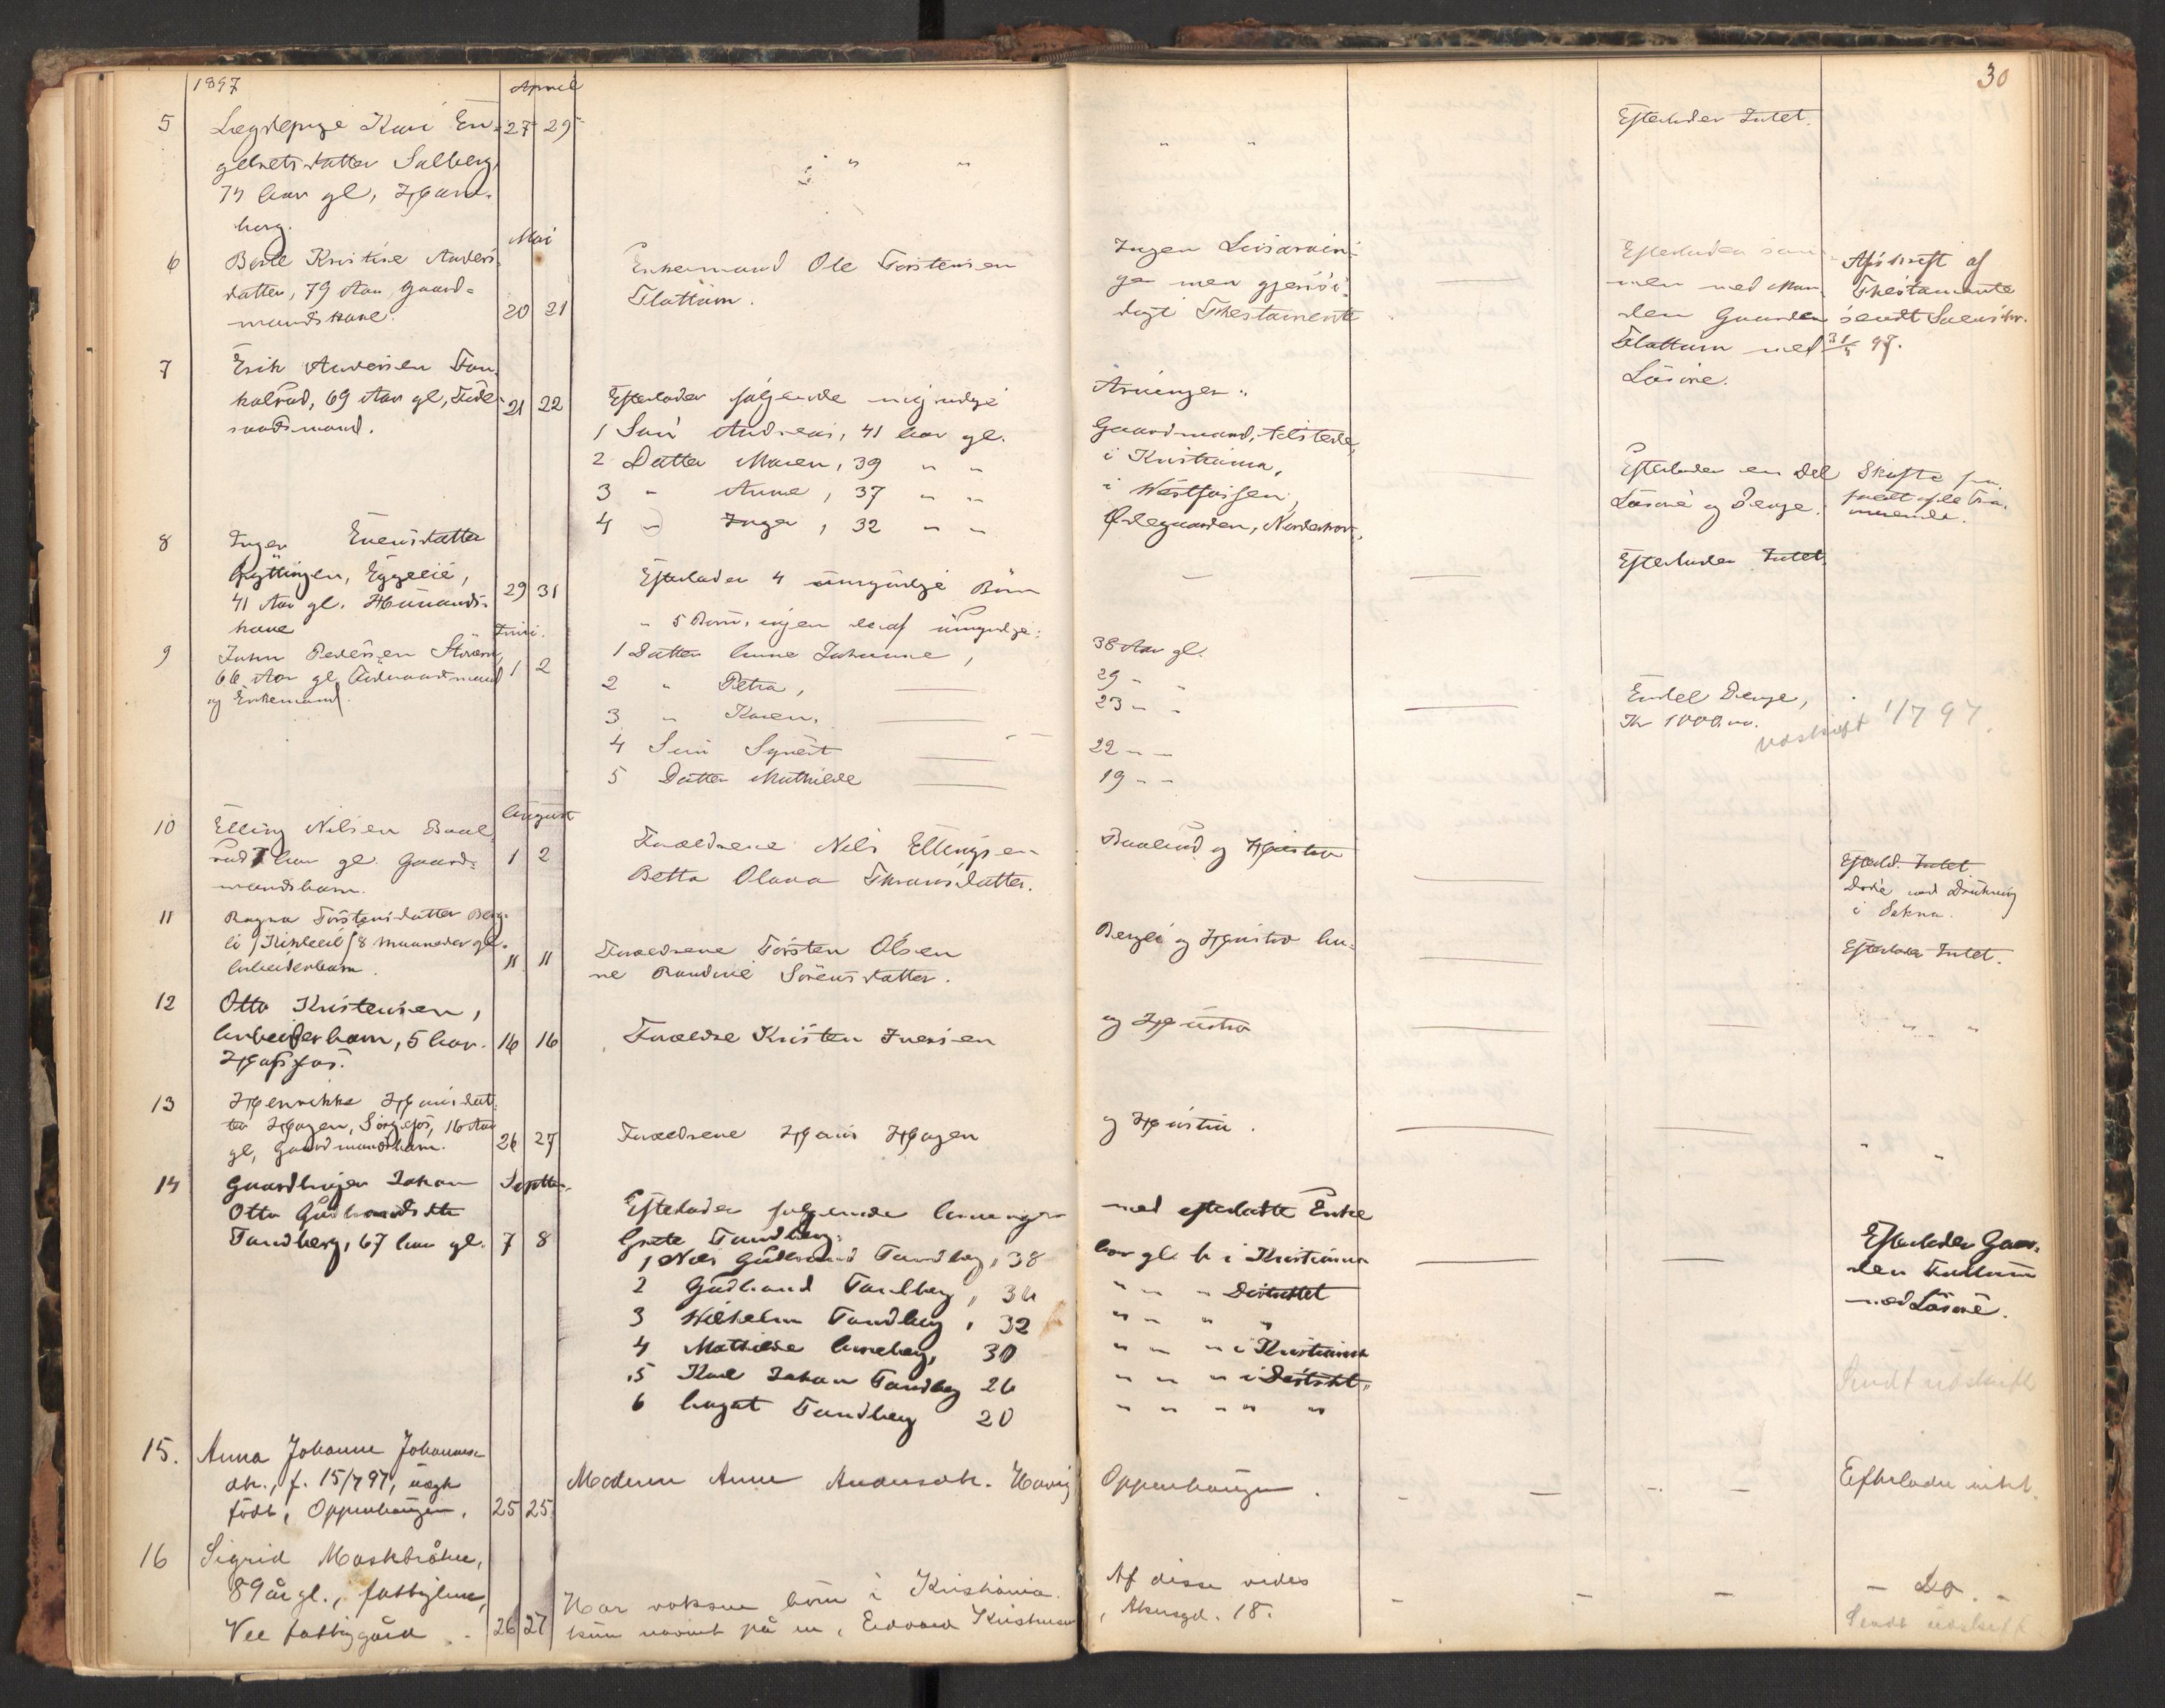 30
1897
April
5 Lægdepige Kari En-
27 29
gebretsdatter Solberg,
74 Aar gl, Hjem-
berg.
" " " "
Efterlader Intet.
Mai
6 Berte Kristine Anders-
datter, 79 Aar, Gaard-
mandskone.
20 21
Enkemand Ole Torstensen
Flattum.
Ingen Livsarvin-
ger men gjensi-
digt Thestamente
Efterlader sam-
men med Man-
den Gaarden
Flattum med
Løsøre.
Afskrift af
Thestamente
sendt Sorenskr.
31/5 97.
7 Erik Andersen
69 Aar gl,
21 22
Efterlader følgende myndige
Arvinger:
1 Søn Andreas, 41 Aar gl.
Gaardmand,
2 Datter Maren, 39 " "
i Kristiania,
3 " Anne, 37 " "
i Vestfossen,
4 " Inger, 32 " "
Norderhov.
Efterlader en Del
Løsøre og Penge.
Skifte
8 Inger Evensdatter
Ryttingen, Eggeeie,
41 Aar gl. Husmands-
kone
29 31
Efterlader 4 umyndige Børn
Efterlader Intet.
Juni.
9 John Pedersen
66 Aar gl
og Enkemand.
1 2
" 5 Børn, ingen deraf umyndige:
1 Datter Anne Johanne,
38 Aar gl.
2 " Petra,
29 " "
3 " Karen,
23 " "
4 Søn Syvert
22 " "
5 Datter Mathilde
19 " "
Endel Penge,
Kr 1000.00.
Udskrift 1/7 97.
August
10 Elling Nilsen
Aar gl. Gaard-
mandsbarn.
1 2
Forældrene Nils Ellingsen
og Hustru
Betta Olava
Efterld. Intet
Døde ved Drukning
i Sokna.
11 Ragna Torstensdatter Berg-
li 8 Maaneder gl.
Arbeiderbarn.
11 11
Forældrene Torsten Olsen
Bergli og Hustru An-
ne Randine Sørensdatter.
Efterlader Intet.
12 Otto Kristensen,
Arbeiderbarn, 5 Aar.
Hofsfos.
16 16
Forældre Kristen Iversen
og Hustru
" " "
13 Henrikke Hansdat-
ter Hagen, 16 Aar
gl, Gaardmandsbarn.
26 27
Forældrene Hans Hagen
og Hustru.
" "
Septbr.
14 Gaardbruger Johan
Otto Gudbrandsen
Tandberg, 67 Aar gl.
7 8
Efterlader følgende Arvinger
med efterladte Enke
Grete Tandberg:
1 Nils Gudbrand Tandberg, 38
Aar gl. b i Kristiania
2 Gudbrand Tandberg, 34
" " " Distriktet
3 Wilhelm Tandberg, 32
" " " "
4 Mathilde Arneberg, 30
" " " i Kristiania
5 Karl Johan Tandberg 26
" " " i Distrikt.
6 August Tandberg 20
" " " " "
Efterlader Gaar-
den
med Løsøre.
Sendt udskrift
15. Anna Johanne Johannes-
dtr., f. 15/7 97, uægte
født, Oppenhaugen.
25 25
Moderen Anne Andersdtr. Hovig
Oppenhaugen.
Efterlader intet.
16 Sigrid Moskbråten,
89 år gl., fattiglem,
Vee fattiggård
26 27
Har voksne børn i Kristiania.
Af disse vides
kun navnet på en, Edvard Kristensen
, Akersgd. 18.
- Do. -
Sendt udskrift